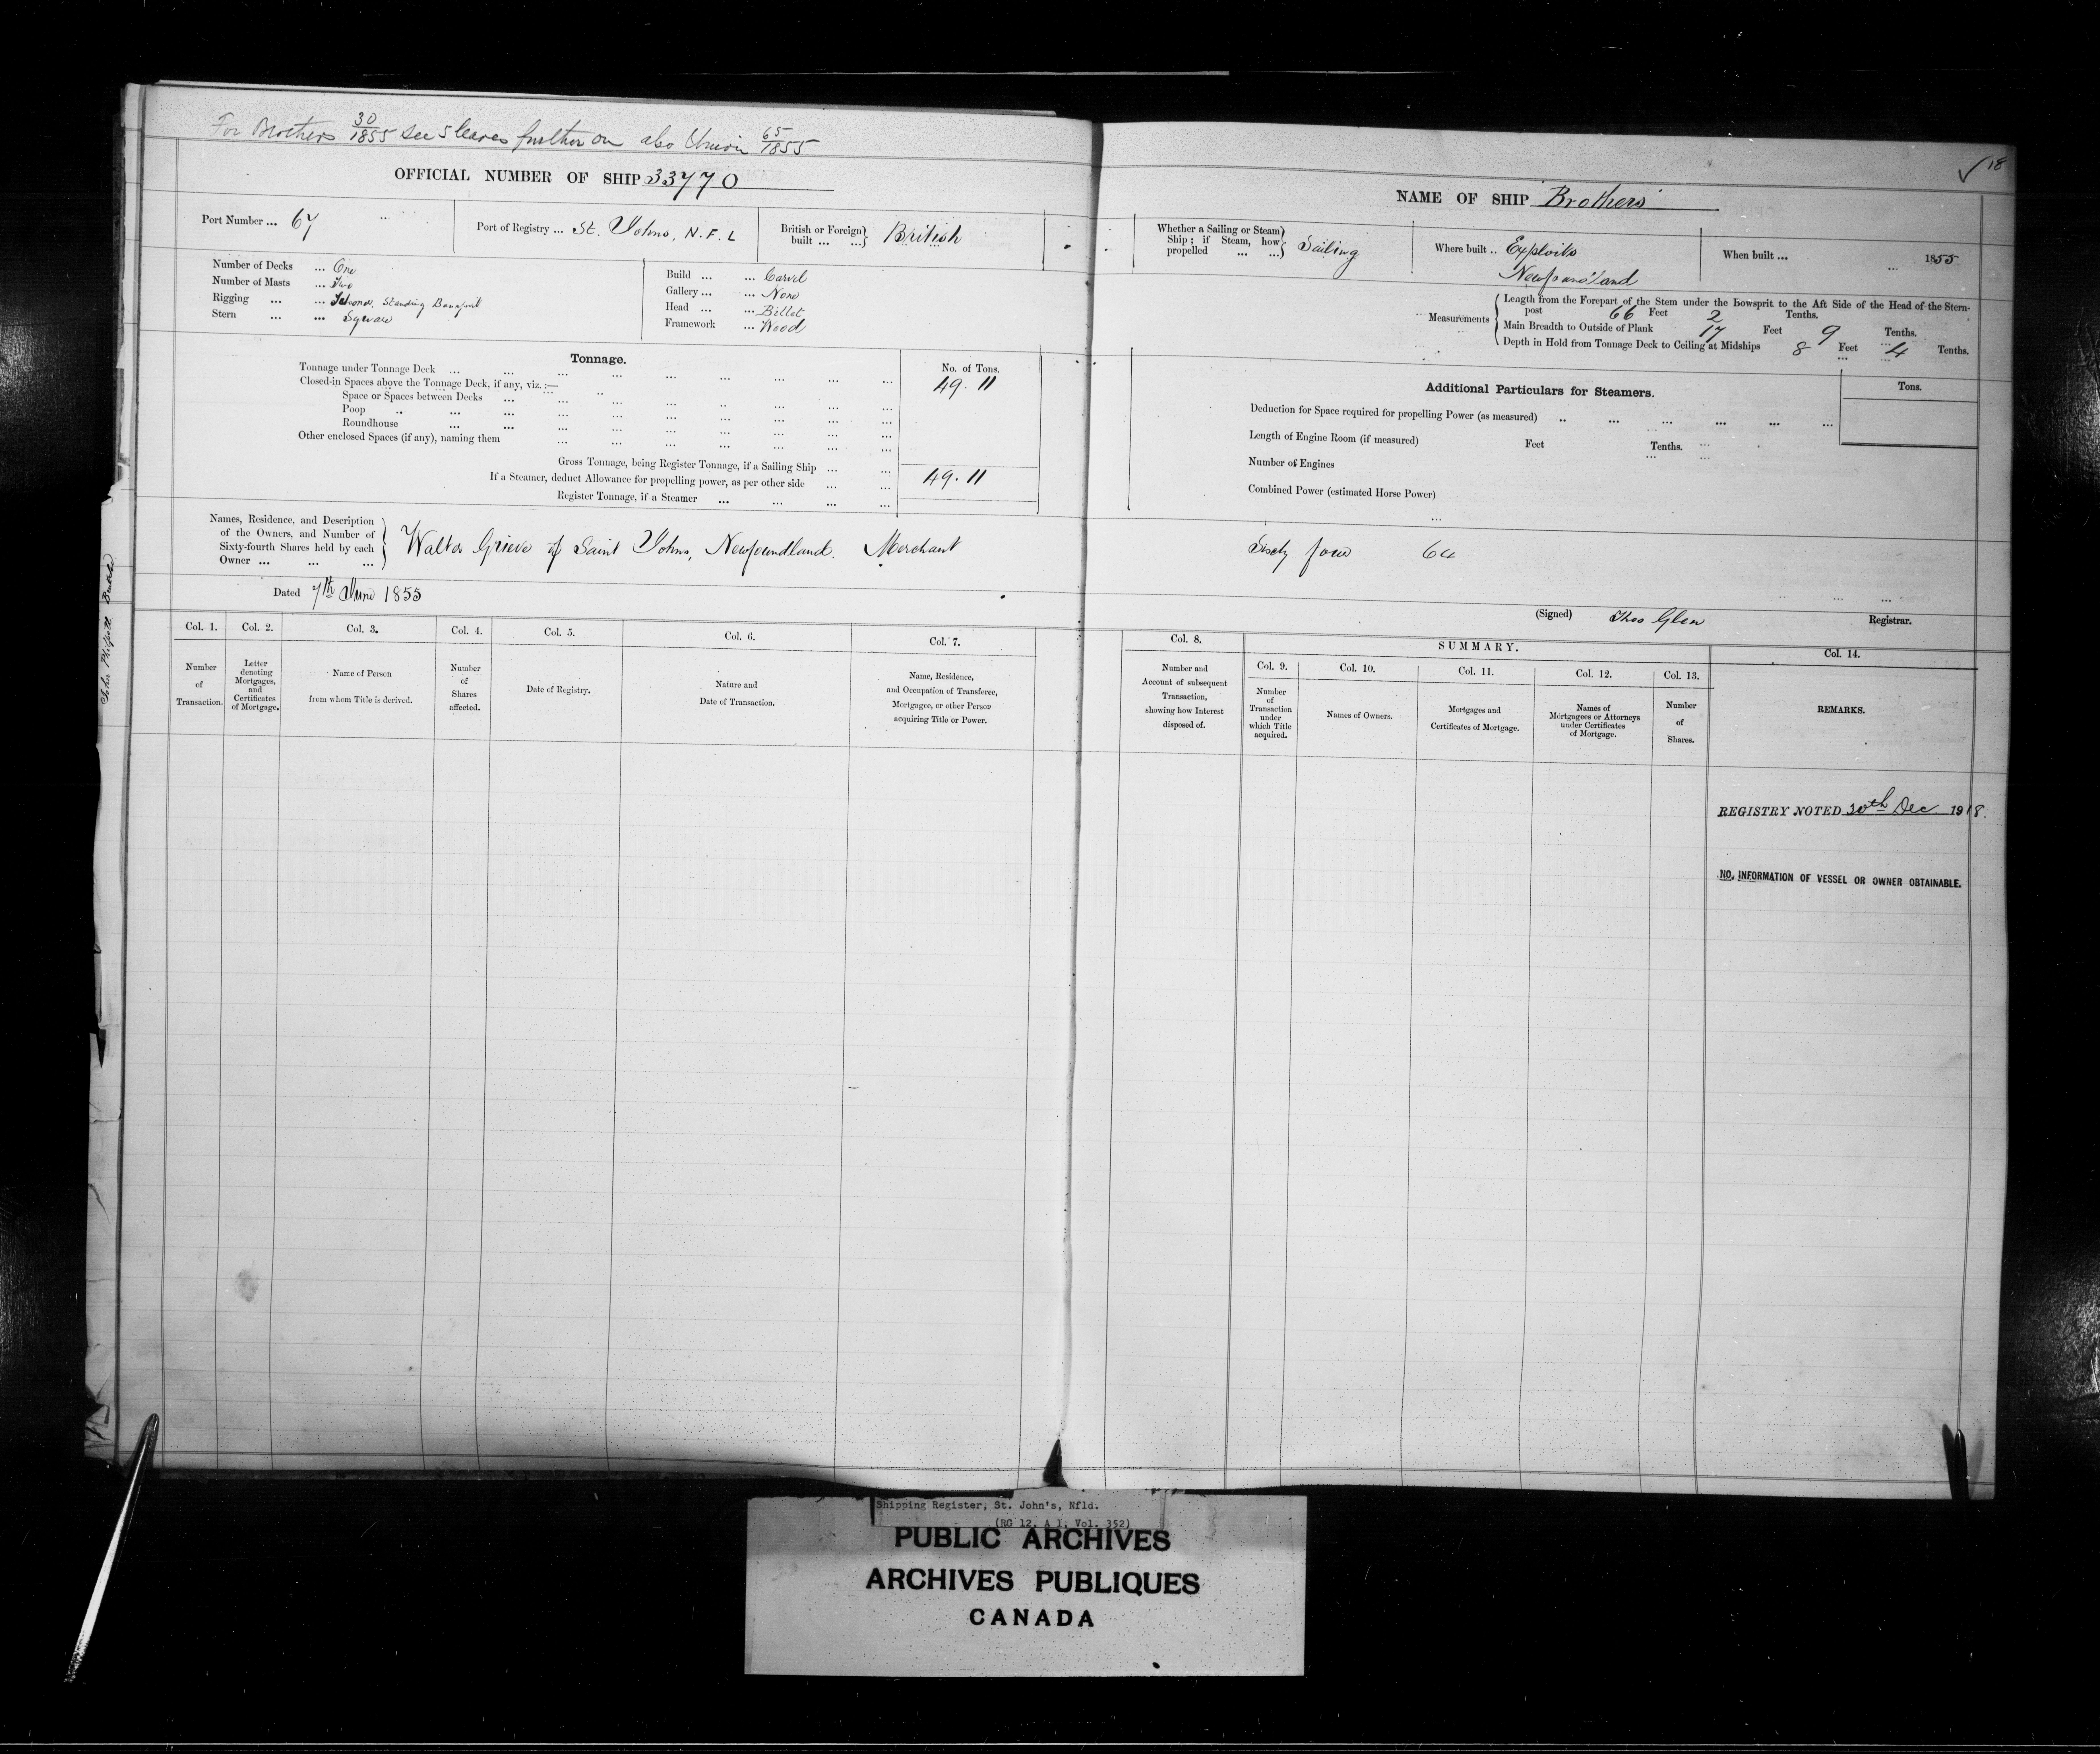 For Brothers 30/1855 see 5 leaves further on also Union 65/1855
OFFICIAL NUMBER OF SHIP 33770
Port Number ... 67
Port of Registry ... St. Johns, N.F.L
British or Foreign built ... ... British
Number of Decks ... One
Number of Masts ... Two
Rigging ... ... Schooner, Standing Bowsprit
Stern ... ... Square
Build ... ... Carvel
Gallery ... ... None
Head ... ... Billet
Framework ... Wood
Tonnage.
No. of Tons.
Tonnage under Tonnage Deck ... ... ... ... ... ... ... ... 49.11
Closed-in Spaces above the Tonnage Deck, if any, viz. :—
Space or Spaces between Decks ... ... ... ... ... ... ... ...
Poop .. ... ... ... ... ... ... ... ...
Roundhouse ... ... ... ... ... ... ... ...
Other enclosed Spaces (if any), naming them ... ... ... ... ... ... ...
Gross Tonnage, being Register Tonnage, if a Sailing Ship ... ... 49.11
If a Steamer, deduct Allowance for propelling power, as per other side ... ...
Register Tonnage, if a Steamer ... ... ... ...
Names, Residence, and Description of the Owners, and Number of Sixty-fourth Shares held by each Owner ... ... ...
Walter Grieve of Saint Johns, Newfoundland. Merchant
Dated 7th June 1855
Col. 1. Col. 2. Col. 3. Col. 4. Col. 5. Col. 6. Col. 7.
Number of Transaction.
Letter denoting Mortgages, and Certificates of Mortgage.
Name of Person from whom Title is derived.
Number of Shares affected.
Date of Registry.
Nature and Date of Transaction.
Name, Residence, and Occupation of Transferee, Mortgagee, or other Person acquiring Title or Power.
18
NAME OF SHIP Brothers
Whether a Sailing or Steam Ship ; if Steam, how propelled ... ... Sailing
Where built .. Exploits
Newfoundland
When built ... ... 1855
Measurements
Length from the Forepart of the Stem under the Bowsprit to the Aft Side of the Head of the Stern-
post 66 Feet 2 Tenths.
Main Breadth to Outside of Plank 17 Feet 9 Tenths.
Depth in Hold from Tonnage Deck to Ceiling at Midships 8 Feet 4 Tenths.
Additional Particulars for Steamers.
Tons.
Deduction for Space required for propelling Power (as measured) .. ... ... ... ... ...
Length of Engine Room (if measured) Feet Tenths.
Number of Engines
Combined Power (estimated Horse Power)
Sixty four 64
(Signed) Thos Glen Registrar.
Col. 8.
SUMMARY.
Col. 9. Col. 10. Col. 11. Col. 12. Col. 13. Col. 14.
Number and Account of subsequent Transaction, showing how Interest disposed of.
Number of Transaction under which Title acquired.
Names of Owners.
Mortgages and Certificates of Mortgage.
Names of Mortgagees or Attorneys under Certificates of Mortgage.
Number of Shares.
REMARKS.
REGISTRY NOTED 20th Dec 1918.
NO. INFORMATION OF VESSEL OR OWNER OBTAINABLE.
Shipping Register, St. John's, Nfld.
(RG 12, A 1, Vol. 352)
PUBLIC ARCHIVES
ARCHIVES PUBLIQUES
CANADA